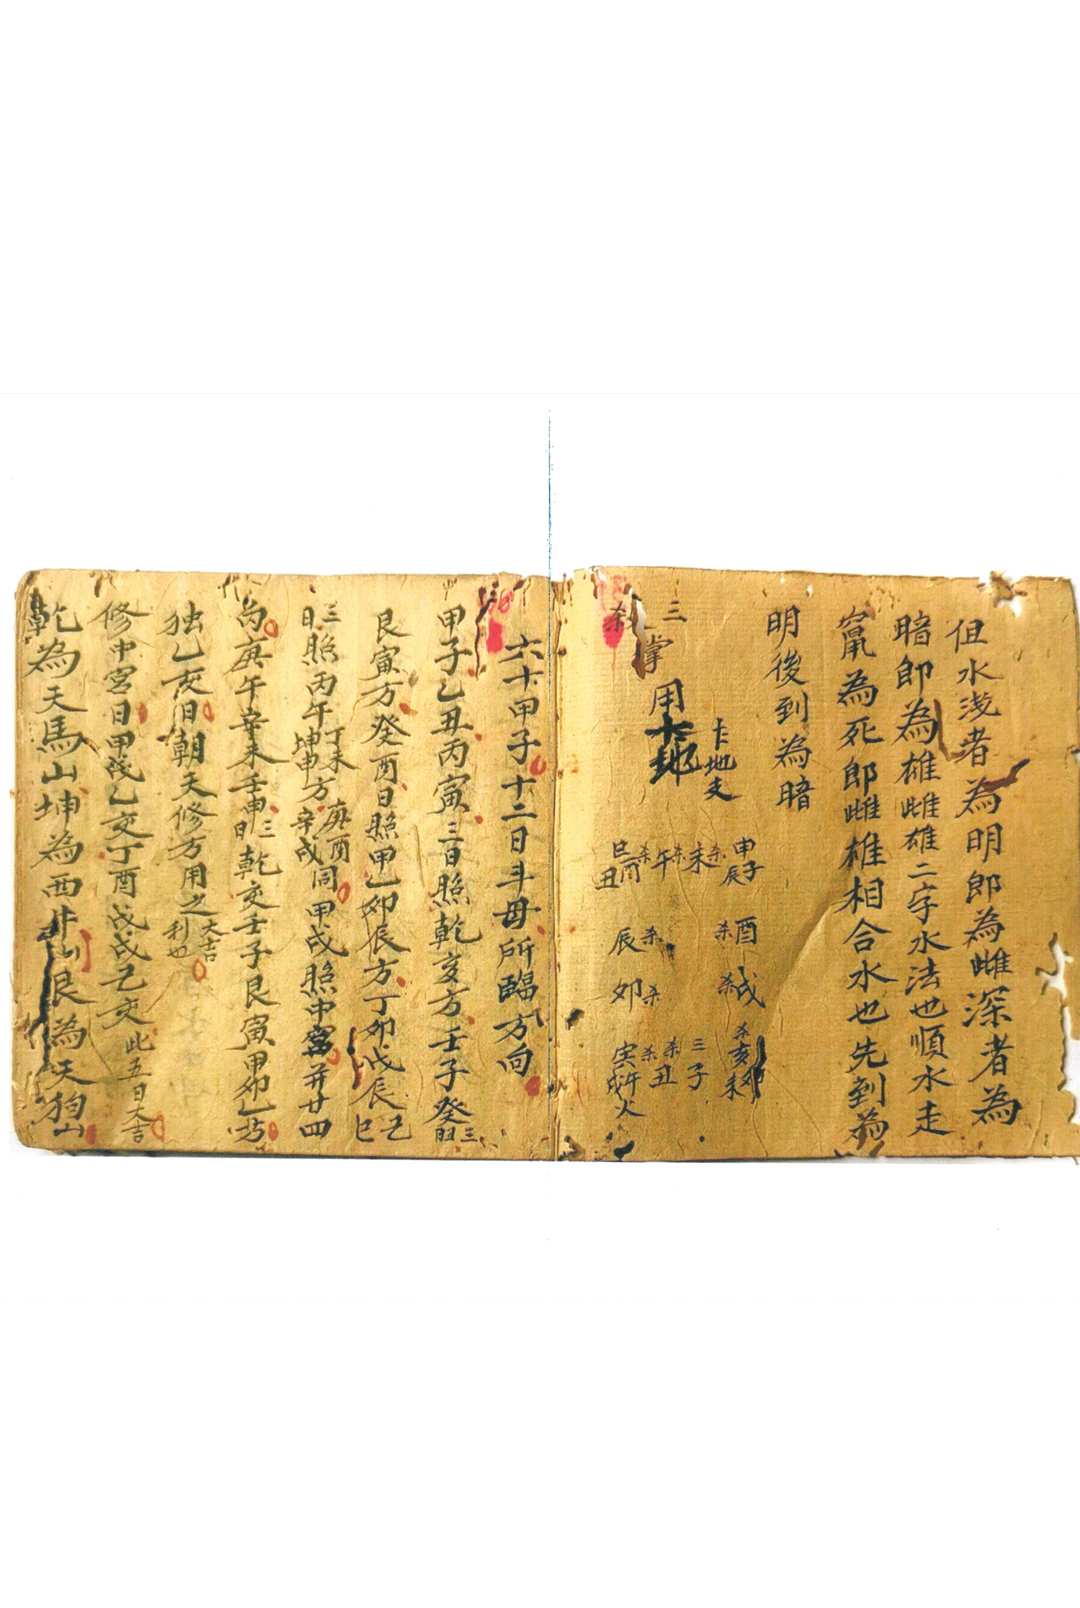 但水浅者為明郎為雌深者為
暗郎為雄雌雄二字水法也順水走
窜為死郎雌雄相合水也先到為
明後到為暗
三杀掌用
十地支
申子辰杀未杀午杀巳酉丑
酉杀
辰杀
戌杀
卯杀
亥卯未杀
三子
丑杀
寅午戌火
六十甲子十二日斗母所臨方向
甲子乙丑丙寅三日照乾亥方壬子癸三日
艮寅方癸酉日照甲乙卯辰方丁卯戊辰己巳
三日照丙午丁未坤申方庚酉辛戌同甲戌照中宮并廿四
向庚午辛未壬申三日乾亥壬子艮寅甲卯乙方
独乙亥日朝天修方用之大吉利也
修中宮日甲戌乙亥丁酉戊戌己亥此五日大吉
乾為天馬山坤為西牛山艮為天狗山